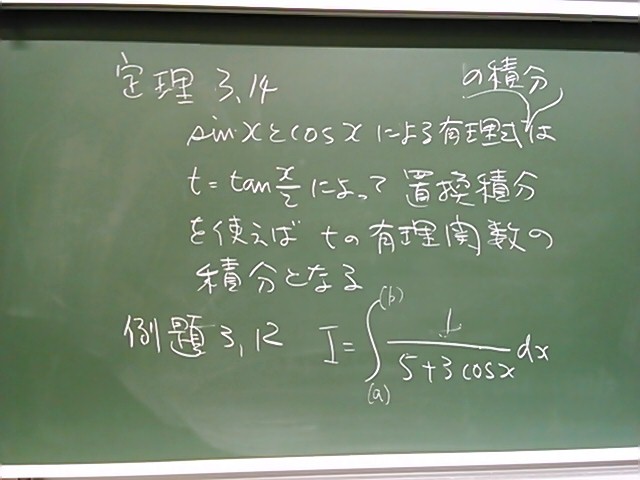 定理 3.14
の積分
sin xとcos xによる有理式は
t=tan x/2 によって 置換積分
を使えば tの有理関数の
積分となる
例題 3.12 I=∫_(a)^(b) 1/(5+3cosx) dx